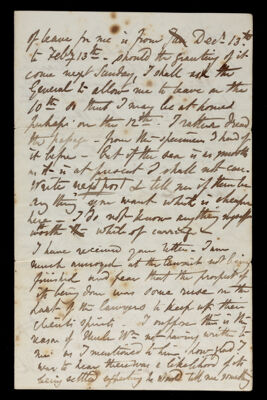 of leave for me is from Dec.r 13.th
to Feb.y 13th - should the granting of it
come next Sunday, I shall ask the
General to allow me to leave on the
10th so that I may be at home
perhaps on the 12th. I rather dread
the passage - from the specimen I had of
it before - But if the sea is as smooth
as it is at present I shall not care.
Write next post & tell me if there be
any thing you want which is cheaper
here - I do not know anything myself
worth the while of carrying
I have received your letter - I am
much annoyed at the lawsuit not being
finished and fear that the prospect of
its being done was some ruse on the
part of the lawyers to keep up their
clients spirits. I suppose this is the
reason of Uncle Wm not having written to
me as I mentioned to him how glad I
was to hear there was a likelihood of its
being settled expecting he would tell me something